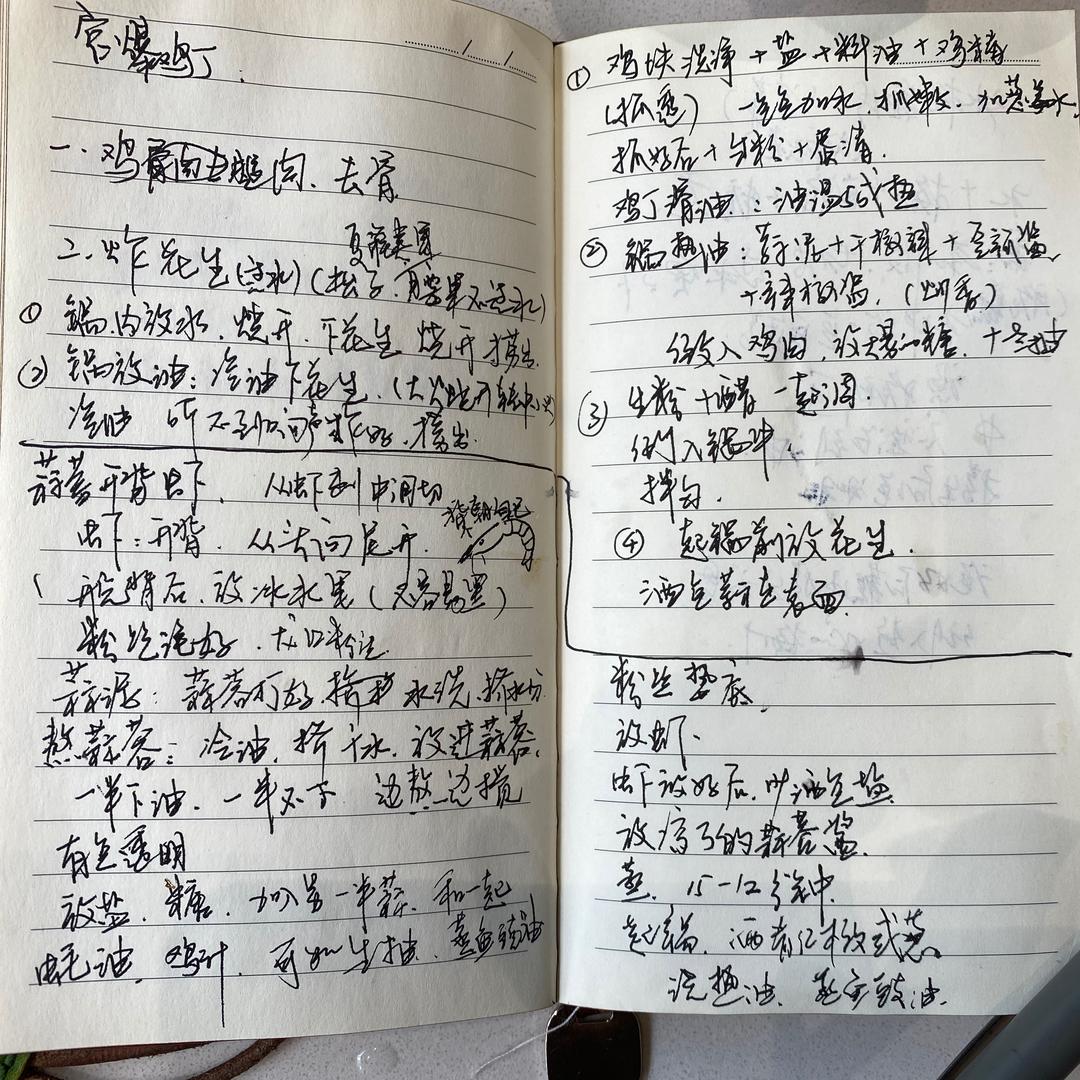 宫爆鸡丁.
一. 鸡 肉. 去骨
二. 炸花生(过水)(松子. 夏威夷果 不过水)
① 锅内放水. 烧开. 下花生 烧开 捞出.
② 锅放油: 冷油下花生. (大火烧开转中火)
冷油 听不到 响声 炸好. 捞出.
蒜蓉开背虾. 从虾 中间切
虾: 开背. 从头向尾开.
开完背后. 放冰水里( )
粉丝泡好.
蒜泥: 蒜蓉打好. 水洗. 挤水分
熬蒜蓉: 冷油. 挤干水. 放进蒜蓉.
一半下油. 一半不下 边熬 边搅
有点透明
放盐. 糖. 加另一半蒜. 和一起
蚝油. 鸡汁. 可加生抽. 蒸鱼豉油
① 鸡块洗净 + 盐 + 料油 + 鸡精
(抓透) 一点点加水. 抓 . 加葱姜水.
抓好后 + 生粉 + 蛋清.
鸡丁滑油. : 油温5成热
② 锅热油: 蒜泥 + 干辣椒 + 豆瓣酱.
+ 辣椒 . (炒香)
放入鸡肉. 放 糖. + 生抽
③ 生粉 + 醋 一起调.
倒入锅中.
拌匀.
④ 起锅前放花生.
洒点 在表面.
粉丝垫底.
放虾.
虾放好后. 少洒点盐.
放 了的蒜蓉酱.
蒸. 15-12分钟.
起锅. 洒青红椒或葱.
浇热油. 蒸鱼豉油.